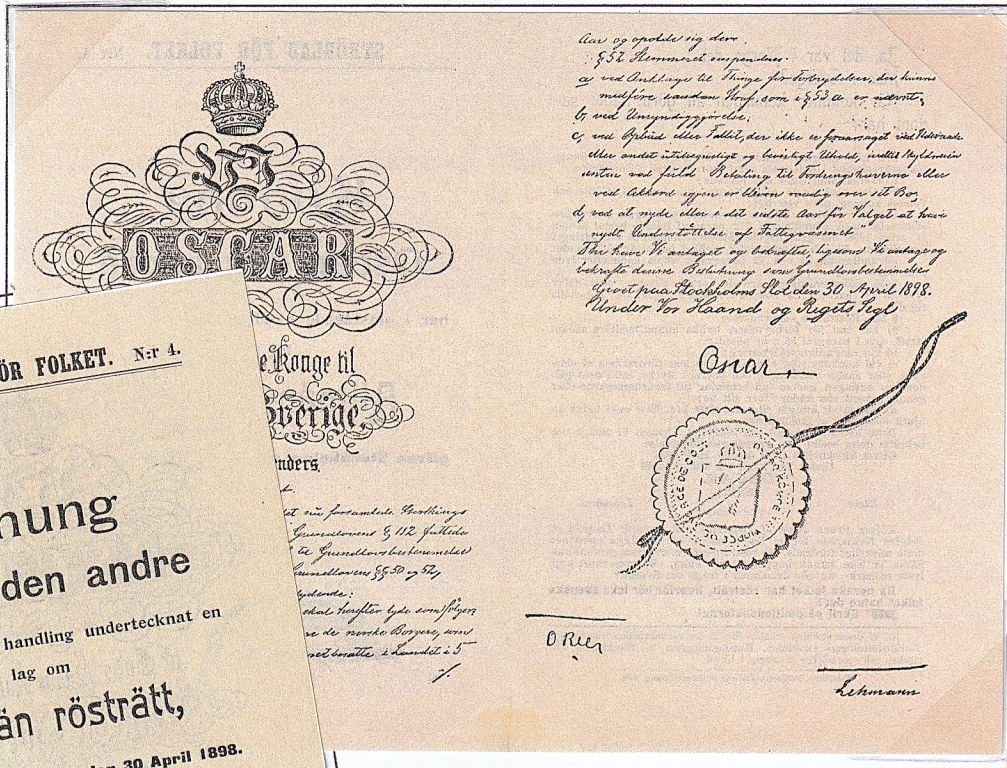 OSCAR
e Konge til
Sverige,
enders
et nu forsamlede Storthings
Grundlovens § 112 fattede
til Grundlovsbestemmelse
Grundlovens §§ 50 og 52,
lydende:
skal herefter lyde som følger:
re de norske Borgere, som
bosatte i Landet i 5
Aar og opholde sig der.
§ 52 Stemmeret suspenderes:
a, ved Anklage til Thinge for Forbrydelser, der kunne
medføre saadan Straf, som i § 53 a er nævnt;
b, ved Umyndiggjørelse;
c, ved Opbud eller Fallit, der ikke er foraarsaget ved Ildsvaade
eller andet utilregneligt og bevisligt Uheld, indtil
enten ved fuld Betaling til Fordringshaverne eller
ved Akkord igjen er bleven raadig over sit Bo,
d, ved at nyde eller i det sidste Aar før Valget at have
nydt Understøttelse af Fattigvæsenet"
Thi have Vi antaget og bekræftet, ligesom Vi antage og
bekræfte denne Beslutning som Grundlovsbestemmelse
Givet paa Stockholms Slot den 30 April 1898.
Under Vor Haand og Rigets Segl
Oscar
Lehmann
ÖR FOLKET. N:r 4.
nung
den andre
handling undertecknat en
lag om
än rösträtt,
30 April 1898.